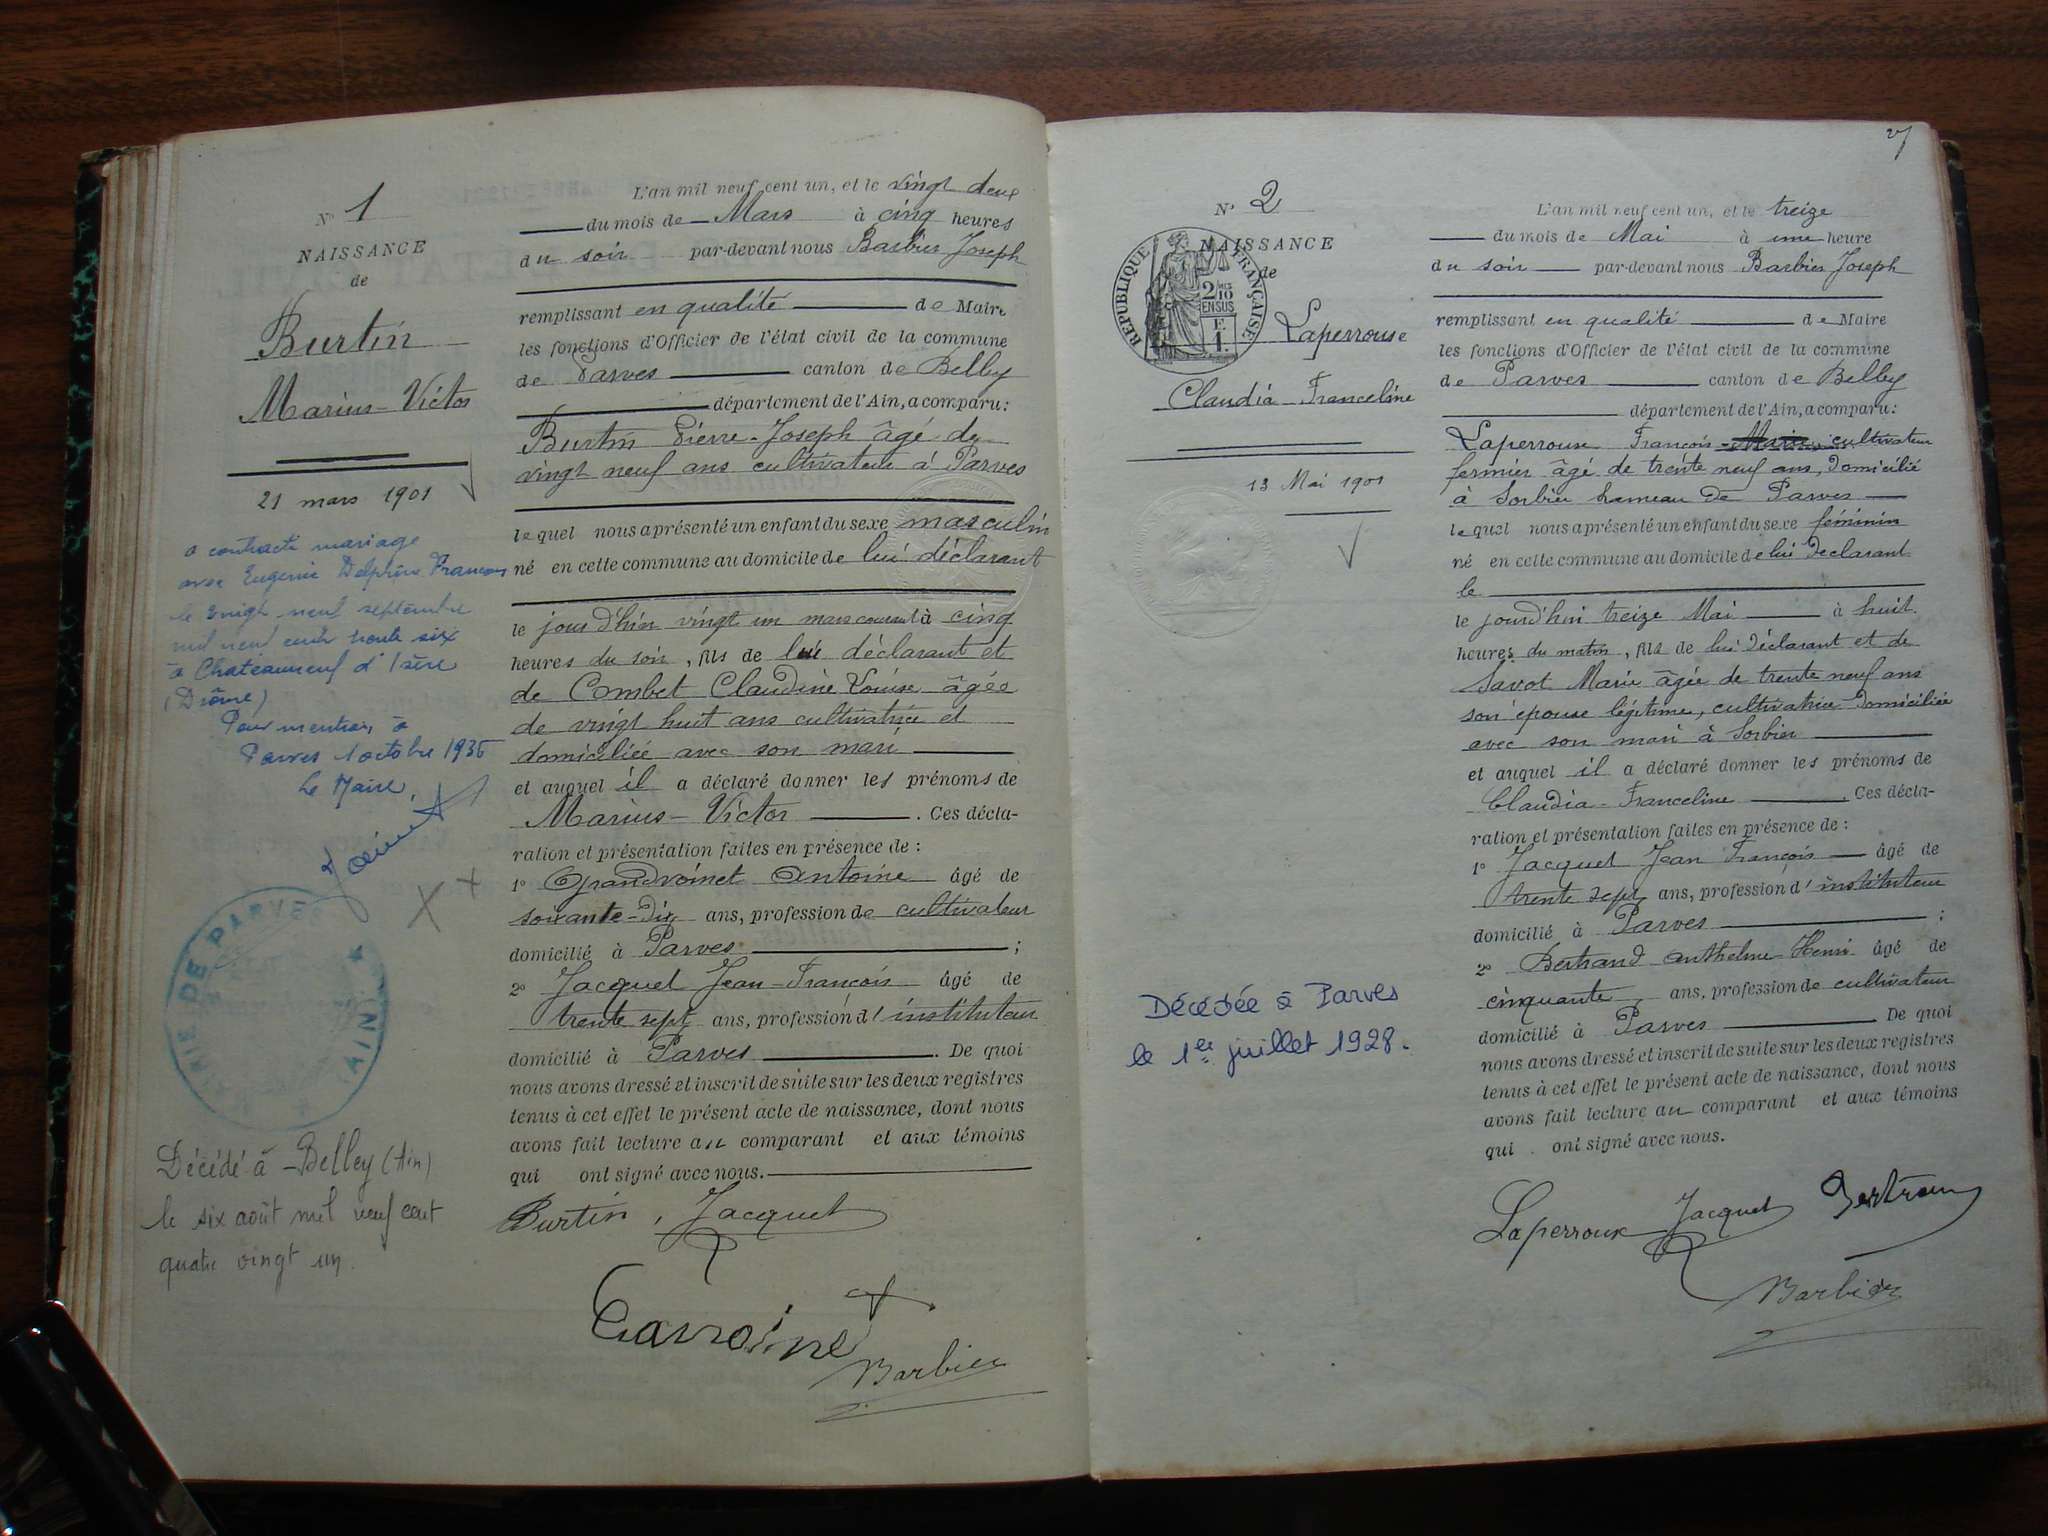 N° 1
NAISSANCE
de
Burtin
Marius-Victor
21 mars 1901
a contracté mariage
avec Eugénie Delphine François
le vingt neuf septembre
mil neuf cent trente six
à Chateauneuf d'Isère
(Drôme)
Pour mention, à
Parves 1 octobre 1936
Le Maire,
MAIRIE DE PARVES
(AIN)
Décédé à Belley (Ain)
le six août mil neuf cent
quatre vingt un.
L'an mil neuf cent un, et le vingt deux
du mois de Mars à cinq heures
du soir par-devant nous Barbier Joseph
remplissant en qualité de Maire
les fonctions d'Officier de l'état civil de la commune
de Parves canton de Belley
département de l'Ain, a comparu:
Burtin Pierre-Joseph âgé de
vingt neuf ans cultivateur à Parves
lequel nous a présenté un enfant du sexe masculin
né en cette commune au domicile de lui déclarant
le jour d'hier vingt un mars courant à cinq
heures du soir, fils de lui déclarant et
de Combet Claudine Louise âgée
de vingt huit ans cultivatrice et
domiciliée avec son mari
et auquel il a déclaré donner les prénoms de
Marius-Victor . Ces décla-
ration et présentation faites en présence de :
1° Grandvoinet Antoine âgé de
soixante-dix ans, profession de cultivateur
domicilié à Parves ;
2° Jacquet Jean-François âgé de
trente sept ans, profession d'instituteur
domicilié à Parves . De quoi
nous avons dressé et inscrit de suite sur les deux registres
tenus à cet effet le présent acte de naissance, dont nous
avons fait lecture au comparant et aux témoins
qui ont signé avec nous.
Burtin, Jacquet
Barbier
27
N° 2
NAISSANCE
de
RÉPUBLIQUE FRANÇAISE
2/10 EN SUS
F. 1.
Laperrouse
Claudia-Franceline
13 Mai 1901
Décédée à Parves
le 1er juillet 1928.
L'an mil neuf cent un, et le treize
du mois de Mai à une heure
du soir par-devant nous Barbier Joseph
remplissant en qualité de Maire
les fonctions d'Officier de l'état civil de la commune
de Parves canton de Belley
département de l'Ain, a comparu:
Laperrouse François-Marie cultivateur
fermier âgé de trente neuf ans, domicilié
à Sorbier hameau de Parves
lequel nous a présenté un enfant du sexe féminin
né en cette commune au domicile de lui déclarant
le
le jourd'hui treize Mai à huit
heures du matin, fils de lui déclarant et de
Savot Marie âgée de trente neuf ans
son épouse légitime, cultivatrice domiciliée
avec son mari à Sorbier
et auquel il a déclaré donner les prénoms de
Claudia-Franceline . Ces décla-
ration et présentation faites en présence de :
1° Jacquet Jean François âgé de
trente sept ans, profession d'instituteur
domicilié à Parves ;
2° Bertrand Anthelme-Henri âgé de
cinquante ans, profession de cultivateur
domicilié à Parves De quoi
nous avons dressé et inscrit de suite sur les deux registres
tenus à cet effet le présent acte de naissance, dont nous
avons fait lecture au comparant et aux témoins
qui ont signé avec nous.
Laperrouse Jacquet Bertrand
Barbier